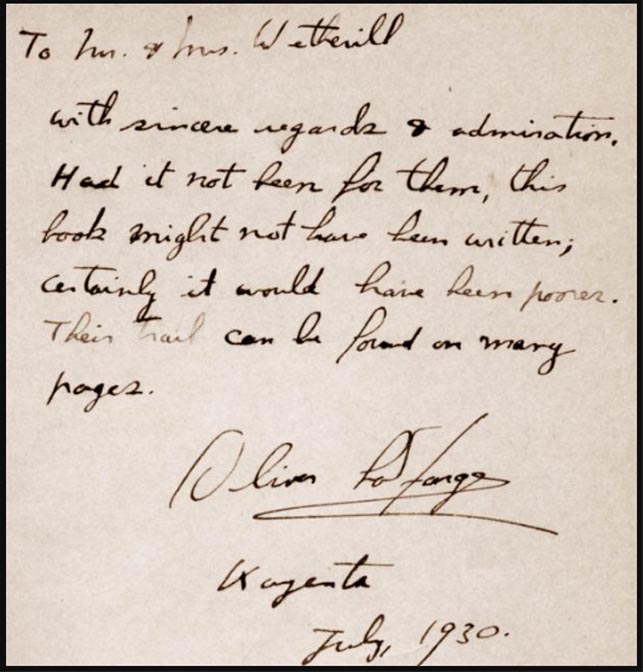 To Mr. & Mrs. Wetherill
with sincere regards & admiration.
Had it not been for them, this
book might not have been written;
certainly it would have been poorer.
Their trail can be found on many
pages.
Oliver La Farge
Kayenta
July, 1930.